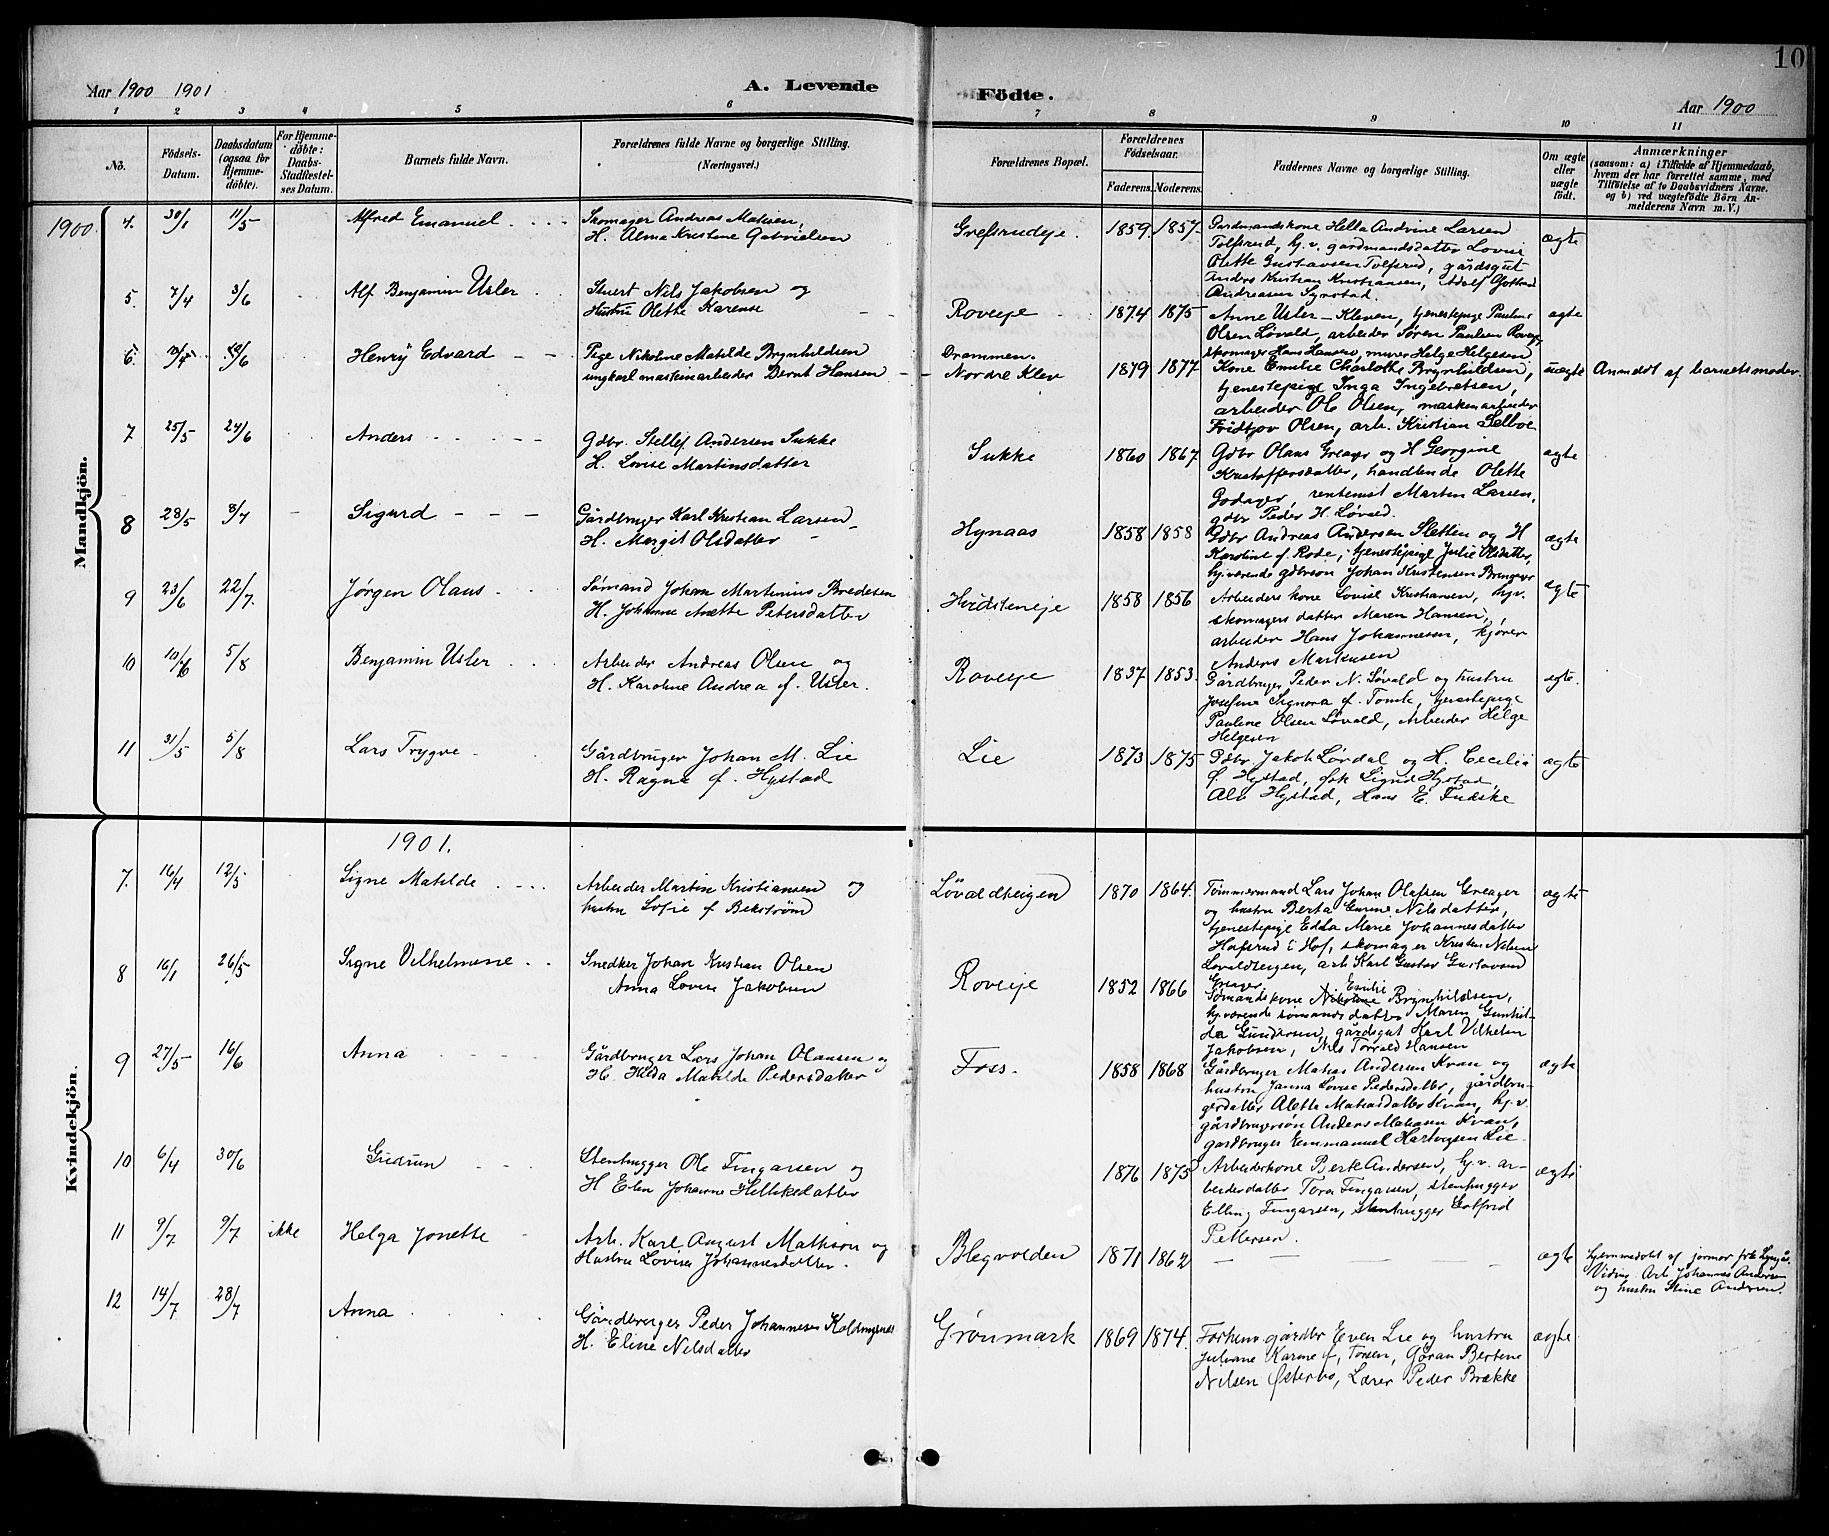 10
Aar 1900 1901
A. Levende
Födte.
Aar 1900
1 2 3 4 5 6 7 8 9 10 11
No.
Födsels-Datum.
Daabsdatum (ogsaa for Hjemme-döbte).
For Hjemme-döbte: Daabs-Stadfæstel-ses Datum.
Barnets fulde Navn.
Forældrenes fulde Navne og borgerlige Stilling. (Næringsvei.)
Forældrenes Bopæl.
Forældrenes Födselsaar.
Faderens. Moderens.
Faddernes Navne og borgerlige Stilling.
Om ægte eller uægte födt.
Anmærkninger
(saasom: a) i Tilfælde af Hjemmedaab, hvem der har forrettet samme, med Tilföielse af to Daabsvidners Navne, og b) ved uægtefödte Börn An-melderens Navn m. V.)
Mandkjön.
1900
4. 30/1 11/5 Alfred Emanuel
Skomager Andreas Matisen,
H. Alma Kristine Gabrielsen
Grefsrudeje. 1859. 1857.
Gardmandskone Hella Andrine Larsen
Tolfsrud, hj.v. gardmandsdatter Lovise
Olette Gustavsen Tolfsrud, gårdsgut
Anders Kristian Kristiansen, Adolf Gotfred
Andreasen Synstad.
ægte
5. 7/4 3/6 Alf Benjamin Usler
Stuert Nils Jakobsen og
Hustru Olette Karense
Roveeje 1874 1875
Anne Usler-Kleven, tjenestepige Pauline
Olsen Løvald, arbeider Søren Paulsen Roveeje
skomager Hans Hansen, murer Helge Helgesen
ægte
6. 10/6 Henry Edvard
Pige Nikoline Matilde Brynhildsen
ungkarl maskinarbeider Bernt Hansen
Drammen.
Nordre Klev 1879 1877
Kone Emilie Charlotte Brynhildsen,
tjenestepige Inga Ingebretsen,
arbeider Ole Olsen, maskinarbeider
Fridtjov Olsen, arb. Kristian Selboe
uægte Anmeldt af barnetsmoder.
7 25/5 24/6 Anders
Gdbr. Stellef Andersen Sukke
H. Lovise Martinsdatter
Sukke 1860 1867
Gdbr Olaus Greager og H Georgine
Kristoffersdatter, handlende Olette
Godager, rentenist Martin Larsen,
gdbr Peder H. Løvald.
ægte
8 28/5 8/7 Sigurd
Gårdbruger Karl Kristian Larsen
H. Margit Olsdatter
Hynaas 1858 1858
Gdbr Andreas Andersen Sletten og H
Karoline f. Rode, tjenestepige Julie Olsdatter,
hj.værende gdbrson Johan Kristensen Brengager
ægte
9 23/6 22/7. Jørgen Olaus
Sømand Johan Martinius Bredesen
H. Johanne Anette Petersdatter
Hvidsteneje 1858 1856
Arbeiders kone Lovise Kristiansen, hj.v.
skomagers datter Maren Hansen,
arbeider Hans Johannesen, kjører
Anders Markusen
ægte
10 10/6 5/8 Benjamin Usler
Arbeider Andreas Olsen og
H. Karoline Andrea f. Usler.
Roveeje 1837 1853.
Gårdbruger Peder N. Løvald og hustru
Josefine Signora f. Tomte, tjenestepige
Pauline Olsen Løvald, Arbeider Helge
Helgesen
ægte.
11 31/5 5/8 Lars Trygve
Gårdbruger Johan M. Lie
H. Ragna f. Hystad
Lie 1873 1875
Gdbr. Jakob Løvdal og H. Cecilia
f Hystad, frk Signe Hystad,
Alb Hystad, Hans E. Fuskke
ægte
Kvindekjön.
1901.
7. 16/4 12/5 Signe Matilde
Arbeider Martin Kristiansen og
hustru Sofie f Bekstrøm
Løvaldteigen 1870 1864.
Tømmermand Lars Johan Olafsen Greager
og hustru Berta Nilsdatter,
tjenestepige Edda Marie Johannesdatter
Hafsrud i Hof, skomager Kristen Nilsen
Løvaldteigen, arb Karl Gustav Gustavsen
Greager
ægte
8 16/1 26/5 Signe Vilhelmine
Snedker Johan Kristian Olsen
Anna Lovise Jakobsen
Roveeje 1852 1866
Sømandskone Nikoline Emilie Brynhildsen,
hj.værende sømands datter Maren Gunhil-
da Gundersen, gårdsgut Karl Vilhelm
Jakobsen, Nils Torvald Hansen
9 27/5 16/6 Anna
Gårdbruger Lars Johan Olausen og
H. Hilda Matilde Pedersdatter
Foss. 1858 1868
Gårdbruger Matias Andersen Kvan og
hustru Janna Lovise Pedersdatter, gårdbru-
gerdatter Alette Matiasdatter Kvan, hj.v.
gårdbrugersøn Anders Matiasen Kvan,
gardbruger Emmanuel Hartvigsen Lie
ægte
10 6/4 30/6 Gudrun
Stenhugger Ole Fingarsen og
H Elen Johanne Hellikedatter
1876 1875
Arbeiderkone Berte Andersen, hj.v. ar-
beiderdatter Tora Fingarsen, stenhugger
Elling Fingarsen, stenhugger Gotfrid
Pettersen.
ægte
11 9/7 9/7 ikke Helga Jonette
Arb. Karl August Matisön og
Hustru Lovise Johannesdatter.
Blegvolden 1871 1862
ægte hjemmedøbt af jormor frk Lyngås.
Vidne, Arb Johannes Andersen
og hustru Stine Andersen.
12 14/7 28/7 Anna
Gårdbruger Peder Johannesen
H. Eline Nilsdatter
Grønmark 1869 1874.
Forhenv. gårdbr Even Lie og hustru
Juliane Karine f, Torsen, Gøran Bertine
Nilsen Østerbo, Lærer Peder Brække
ægte